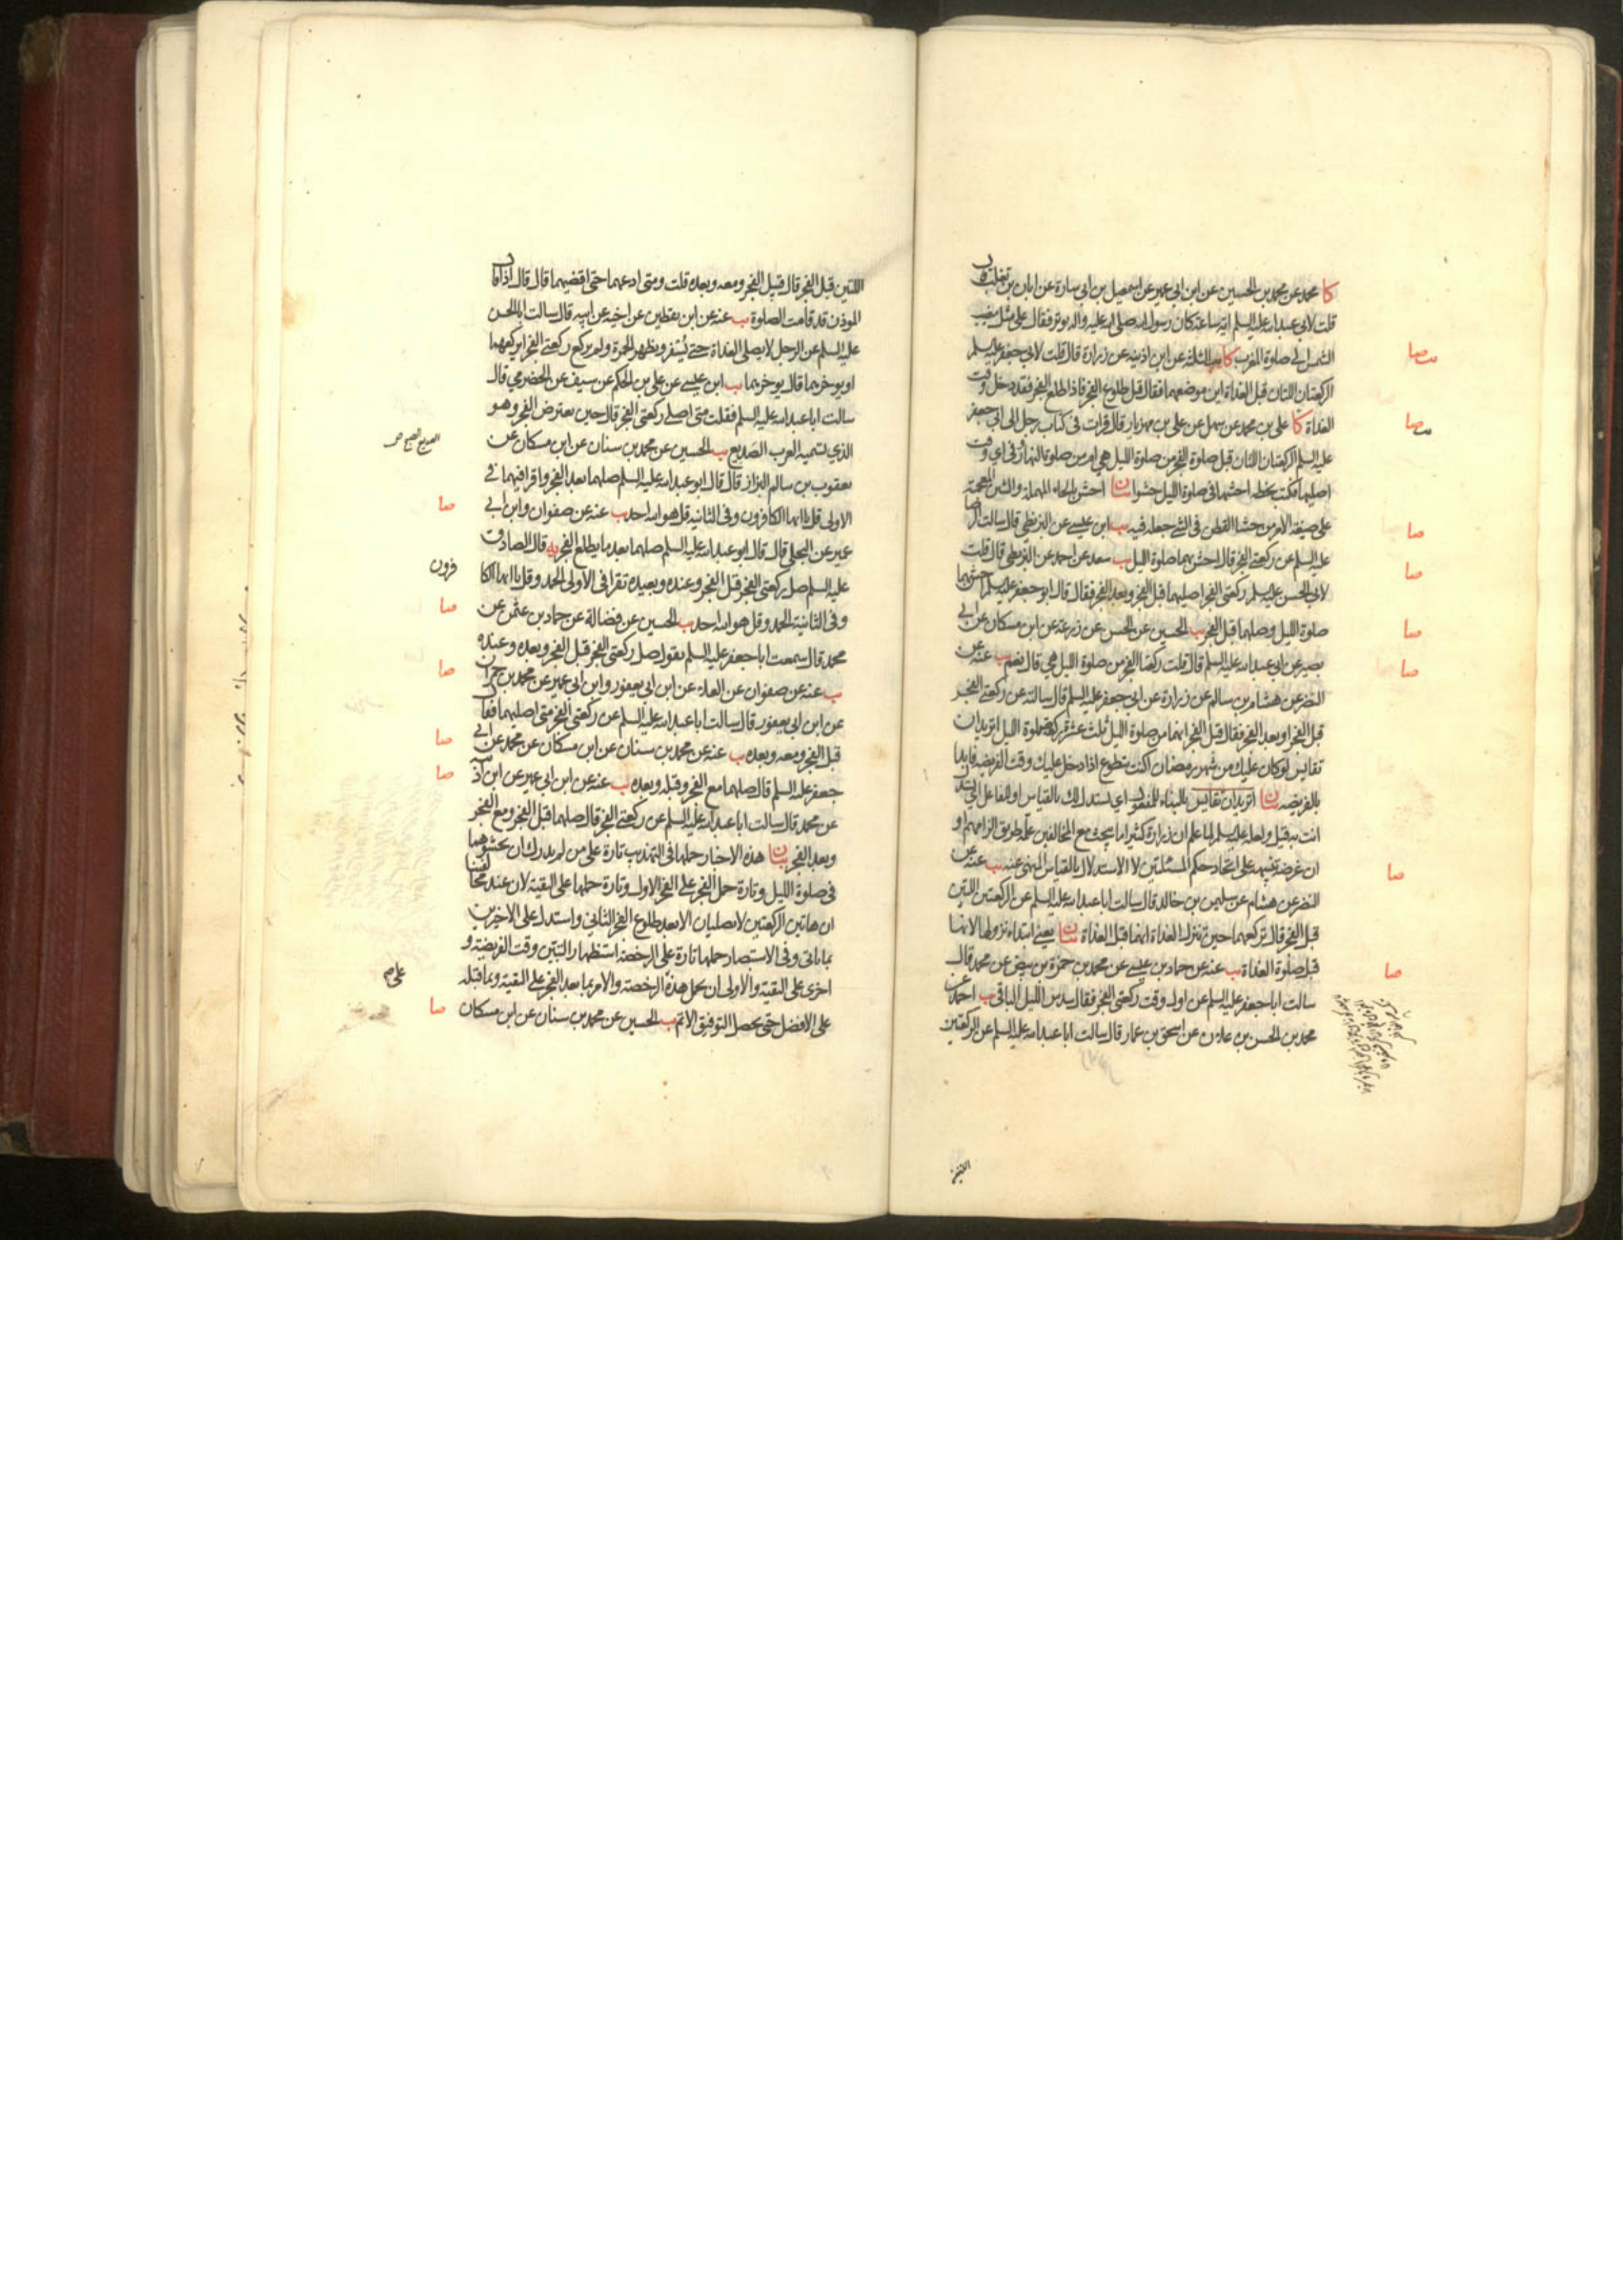 كا محمد عن محمد بن الحسين عن ابن ابي عمير عن اسمعيل بن ابي سارة عن ابان بن تغلب قال
قلت لابي عبد الله عليه السلم اية ساعة كان رسول الله صلى الله عليه واله يوتر فقال على مثل مغيب
الشمس الى صلوة المغرب كا يب الثلثة عن ابن اذينة عن زرارة قال قلت لابي جعفر عليه السلم
الركعتان اللتان قبل الغداة اين موضعهما فقال قبل طلوع الفجر فاذا طلع الفجر فقد دخل وقت
الغداة كا علي بن محمد عن سهل عن علي بن مهزيار قال قرات في كتاب رجل الى ابي جعفر
عليه السلم الركعتان اللتان قبل صلوة الفجر من صلوة الليل هي ام من صلوة النهار وفي اي وقت
اصليها فكتب بخطه احشهما في صلوة الليل حشوا بيان احش بالحاء المهملة والشين المعجمة
على صيغة الامر من حشا القطن في الشيء جعله فيه يب ابن عيسى عن البزنطي قال سالت الرضا
عليه السلم عن ركعتي الفجر قال احش بهما صلوة الليل يب سعد عن احمد عن البزنطي قال قلت
لابي الحسن عليه السلم ركعتي الفجر اصليهما قبل الفجر وبعد الفجر فقال قال ابو جعفر عليه السلم احش بهما
صلوة الليل وصلهما قبل الفجر يب الحسين عن الحسن عن زرعة عن ابن مسكان عن ابي
بصير عن ابي عبد الله عليه السلم قال قلت ركعتا الفجر من صلوة الليل هي قال نعم يب عنه عن
النضر عن هشام بن سالم عن زرارة عن ابي جعفر عليه السلم قال سالته عن ركعتي الفجر
قبل الفجر او بعد الفجر فقال قبل الفجر انهما من صلوة الليل ثلث عشرة ركعة صلوة الليل اتريد ان
تقايس لو كان عليك من شهر رمضان اكنت تتطوع اذا دخل عليك وقت الفريضة فابدا
بالفريضة بيان اتريد ان تقايس بالبناء للمفعول اي يستدل لك بالقياس او للفاعل اي تستدل
انت به قيل ولعله عليه السلم لما علم ان زرارة كثيرا ما يبحث مع المخالفين علمه طريق الزامهم او
ان غرضه تنبيهه على اتحاد حكم المسئلتين لا الاستدلال بالقياس المنهي عنه يب عنه عن
النضر عن هشام عن سليمن بن خالد قال سالت ابا عبد الله عليه السلم عن الركعتين اللتين
قبل الفجر قال تركعهما حين تنزل الغداة انهما قبل الغداة بيان يعني ابتداء نزولها لانها
قبل صلوة الغداة يب عنه عن حماد بن عيسى عن محمد بن حمزة بن بيض عن محمد قال
سالت ابا جعفر عليه السلم عن اول وقت ركعتي الفجر فقال سدس الليل الباقي يب احمد عن
محمد بن الحسن بن علان عن اسحق بن عمار قال سالت ابا عبد الله عليه السلم عن الركعتين
صا
صا
صا
صا
صا
صا
صا
صا
اللتين قبل الفجر قال قبيل الفجر ومعه وبعده قلت ومتى ادعهما حتى اقضيهما قال قال اذا قال
الموذن قد قامت الصلوة يب عنه عن ابن يقطين عن اخيه عن ابيه قال سالت ابا الحسن
عليه السلم عن الرجل لا يصلي الغداة حتى يسفر ويظهر الحمرة ولم يركع ركعتي الفجر ايركعهما
او يوخرهما قال يوخرهما يب ابن عيسى عن علي بن الحكم عن سيف عن الحضرمي قال
سالت ابا عبد الله عليه السلم فقلت متى اصلي ركعتي الفجر قال حين يعترض الفجر وهو
الذي تسميه العرب الصديع يب الحسين عن محمد بن سنان عن ابن مسكان عن
يعقوب بن سالم البزاز قال قال ابو عبد الله عليه السلم صلهما بعد الفجر واقرا فيهما في
الاولى قل يا ايها الكافرون وفي الثانية قل هو الله احد يب عنه عن صفوان وابن ابي
عمير عن البجلي قال قال ابو عبد الله عليه السلم صلهما بعد ما يطلع الفجر يه قال الصادق
عليه السلم صل ركعتي الفجر قبل الفجر وعنده وبعيده تقرا في الاولى الحمد وقل يا ايها الكا
فرون
وفي الثانية الحمد وقل هو الله احد يب الحسين عن فضالة عن حماد بن عثمن عن
محمد قال سمعت ابا جعفر عليه السلم يقول صل ركعتي الفجر قبل الفجر وبعده وعنده
يب عنه عن صفوان عن العلاء عن ابن ابي يعفور وابن ابي عمير عن محمد بن حمران
عن ابن ابي يعفور قال سالت ابا عبد الله عليه السلم عن ركعتي الفجر متى اصليهما فقال
قبل الفجر ومعه وبعده يب عنه عن محمد بن سنان عن ابن مسكان عن محمد عن ابي
جعفر عليه السلم قال صلهما مع الفجر وقبله وبعده يب عنه عن ابن ابي عمير عن ابن اذينه
عن محمد قال سالت ابا عبد الله عليه السلم عن ركعتي الفجر قال صلهما قبل الفجر ومع الفجر
وبعد الفجر بيان هذه الاخبار حملها في التهذيب تارة على من لم يدرك ان يحشوهما
في صلوة الليل وتارة حمل الفجر على الفجر الاول وتارة حملها على التقية لان عند مخالفينا
ان هاتين الركعتين لا تصليان الا بعد طلوع الفجر الثاني واستدل على الاخيرين
بما ياتي وفي الاستبصار حملها تارة على الرخصة استظهارا لتبين وقت الفريضة و
اخرى على التقية والاولى ان يحمل هذه الرخصة والامر بما بعد الفجر على التقية وبما قبله
على الافضل حتى يحصل التوفيق الاتم يب الحسين عن محمد بن سنان عن ابن مسكان
صا
صا
صا
صا
صا
صا